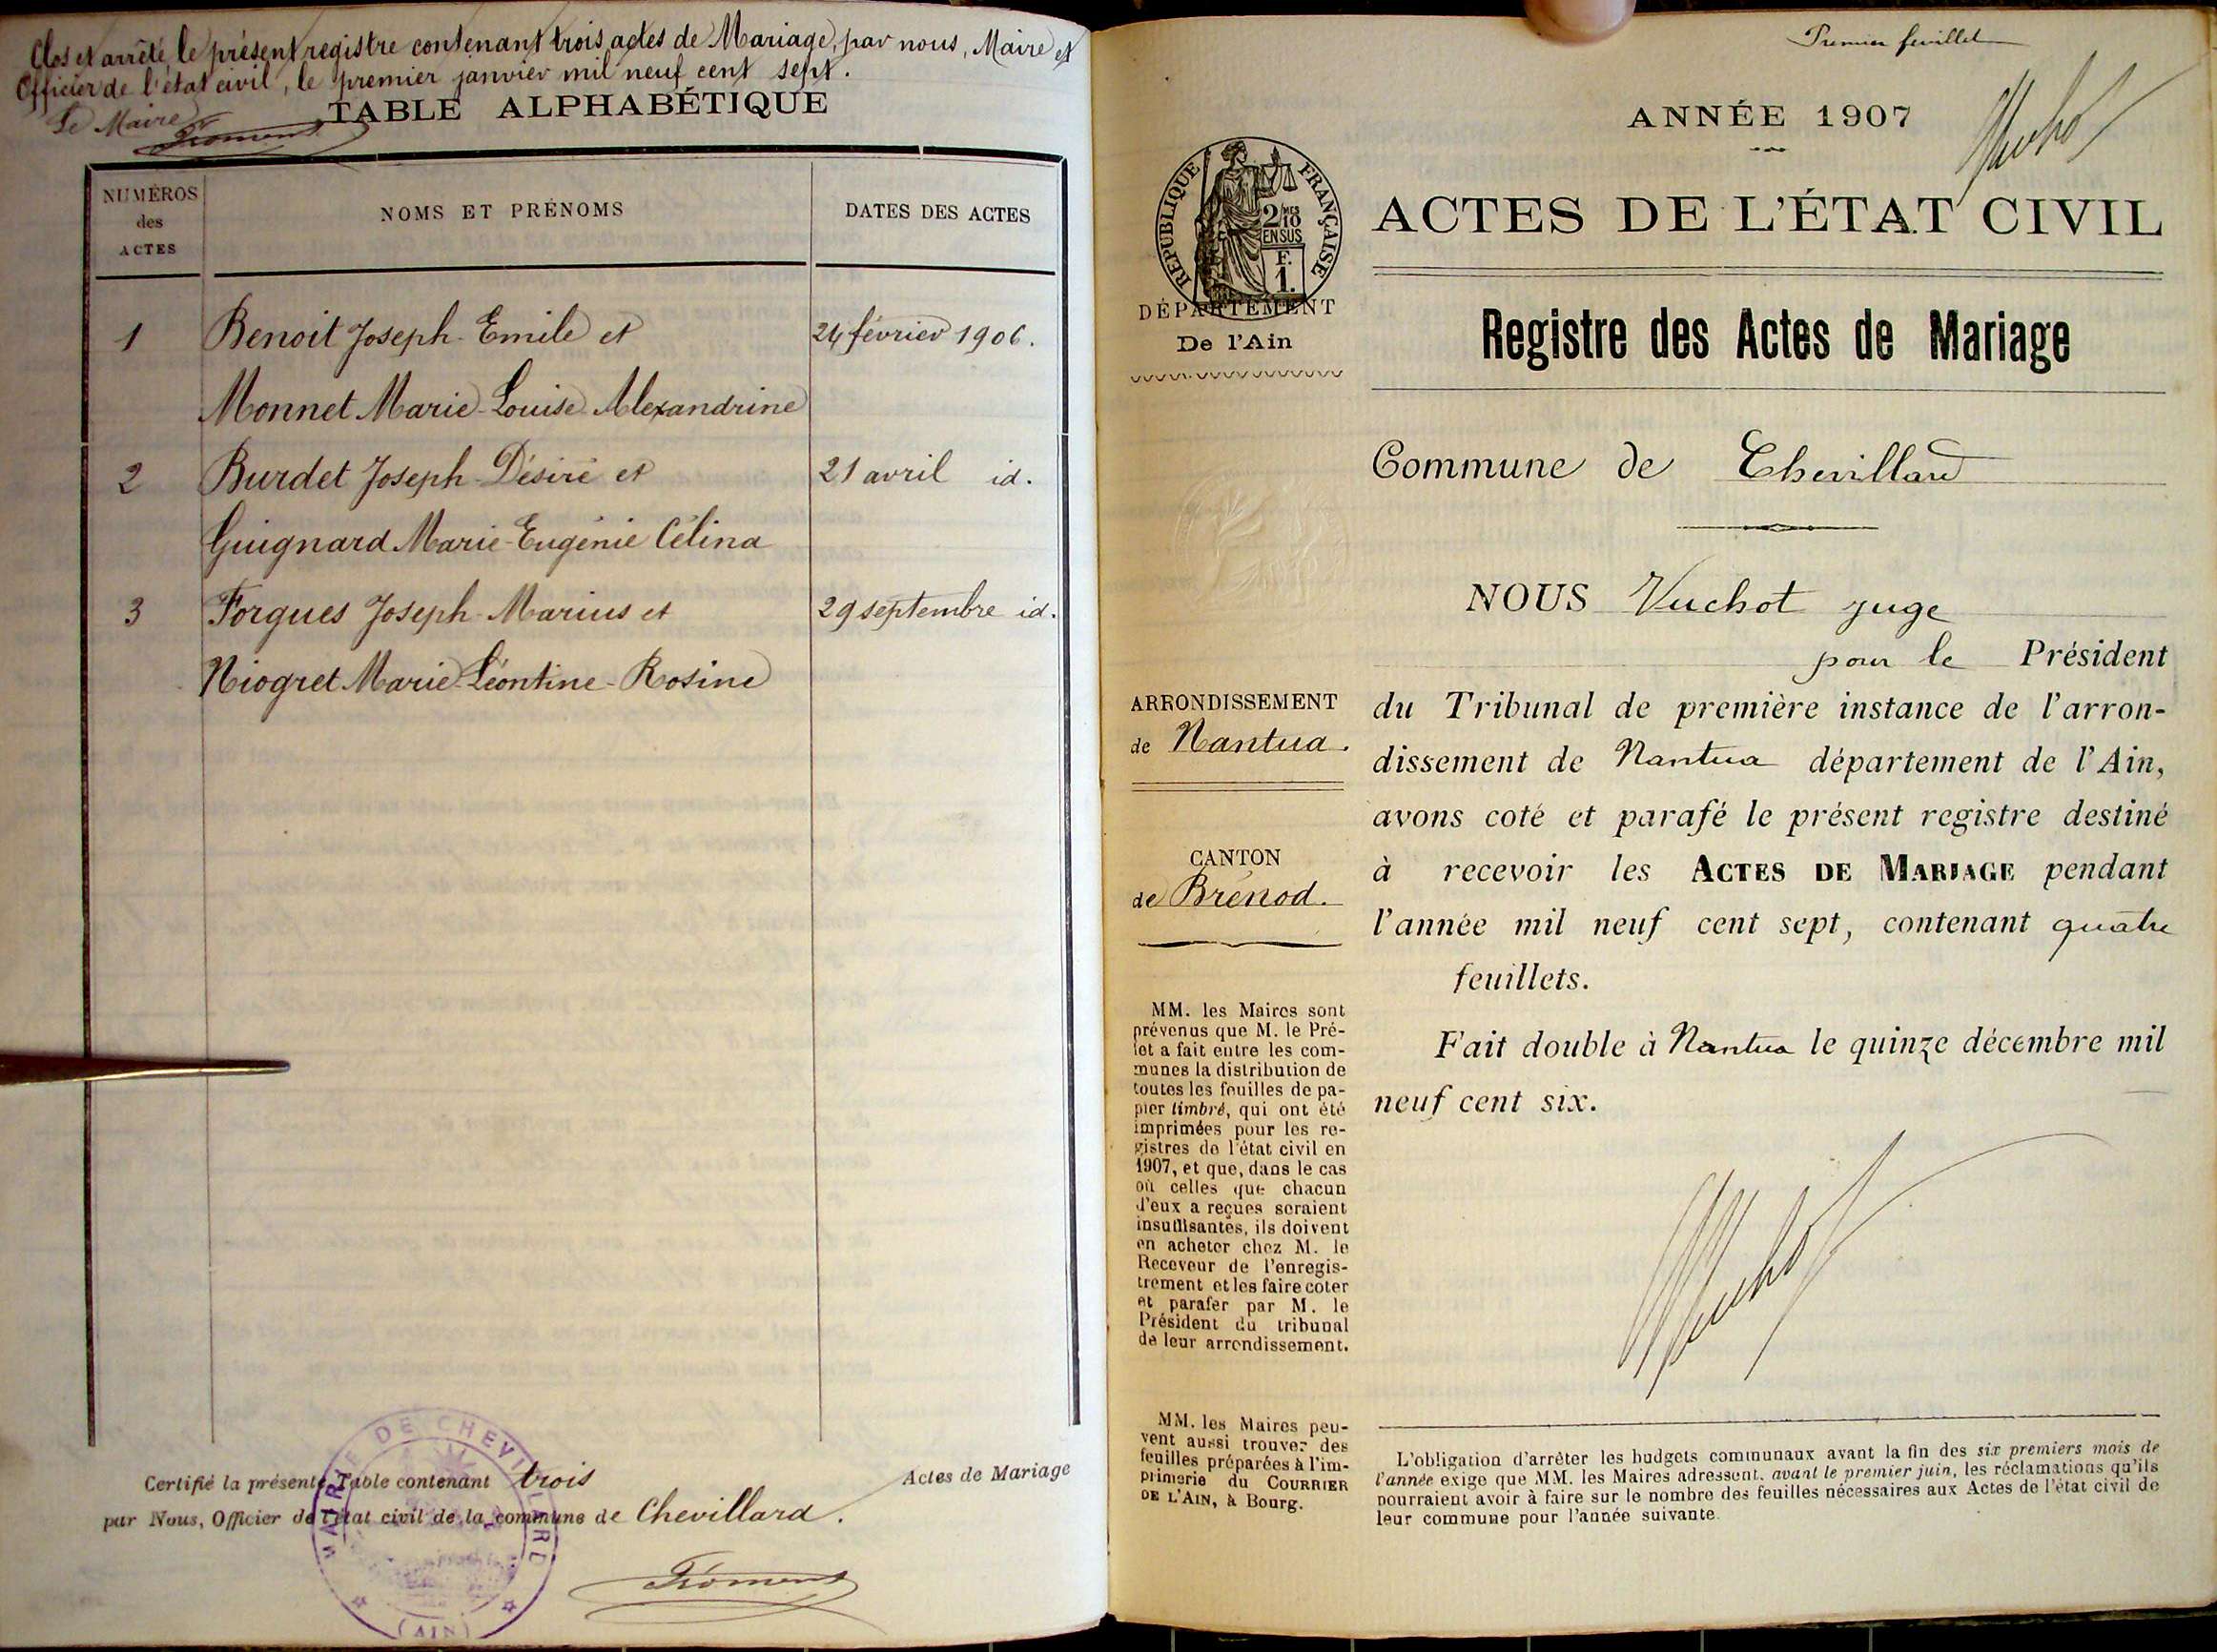 Clos et arrêté, le présent registre contenant trois actes de Mariage, par nous, Maire et
Officier de l'état civil, le premier janvier mil neuf cent sept.
Le Maire
Froment
TABLE ALPHABÉTIQUE
NUMÉROS
des
ACTES
NOMS ET PRÉNOMS
DATES DES ACTES
1 Benoit Joseph-Emile et 24 février 1906.
Monnet Marie-Louise Alexandrine
2 Burdet Joseph-Désiré et 21 avril id.
Guignard Marie-Eugénie Célina
3 Forgues Joseph-Marius et 29 septembre id.
Niogret Marie-Léontine-Rosine
Certifié la présente Table contenant trois Actes de Mariage
par Nous, Officier de l'état civil de la commune de Chevillard.
MAIRIE DE CHEVILLARD
(AIN)
Froment
Premier feuillet
Vuchot
ANNÉE 1907
ACTES DE L'ÉTAT CIVIL
RÉPUBLIQUE FRANÇAISE
2/10MES
EN SUS
F.
1.
DÉPARTEMENT
De l'Ain
Registre des Actes de Mariage
Commune de Chevillard
NOUS Vuchot juge
pour le Président
ARRONDISSEMENT
de Nantua.
CANTON
de Brénod.
du Tribunal de première instance de l'arron-
dissement de Nantua département de l'Ain,
avons coté et parafé le présent registre destiné
à recevoir les ACTES DE MARIAGE pendant
l'année mil neuf cent sept, contenant quatre
feuillets.
Fait double à Nantua le quinze décembre mil
neuf cent six.
Vuchot
MM. les Maires sont
prévenus que M. le Pré-
fet a fait entre les com-
munes la distribution de
toutes les feuilles de pa-
pier timbré, qui ont été
imprimées pour les re-
gistres de l'état civil en
1907, et que, dans le cas
où celles que chacun
d'eux a reçues seraient
insuffisantes, ils doivent
en acheter chez M. le
Receveur de l'enregis-
trement et les faire coter
et parafer par M. le
Président du tribunal
de leur arrondissement.
MM. les Maires peu-
vent aussi trouver des
feuilles préparées à l'im-
primerie du COURRIER
DE L'AIN, à Bourg.
L'obligation d'arrêter les budgets communaux avant la fin des six premiers mois de
l'année exige que MM. les Maires adressent, avant le premier juin, les réclamations qu'ils
pourraient avoir à faire sur le nombre des feuilles nécessaires aux Actes de l'état civil de
leur commune pour l'année suivante.